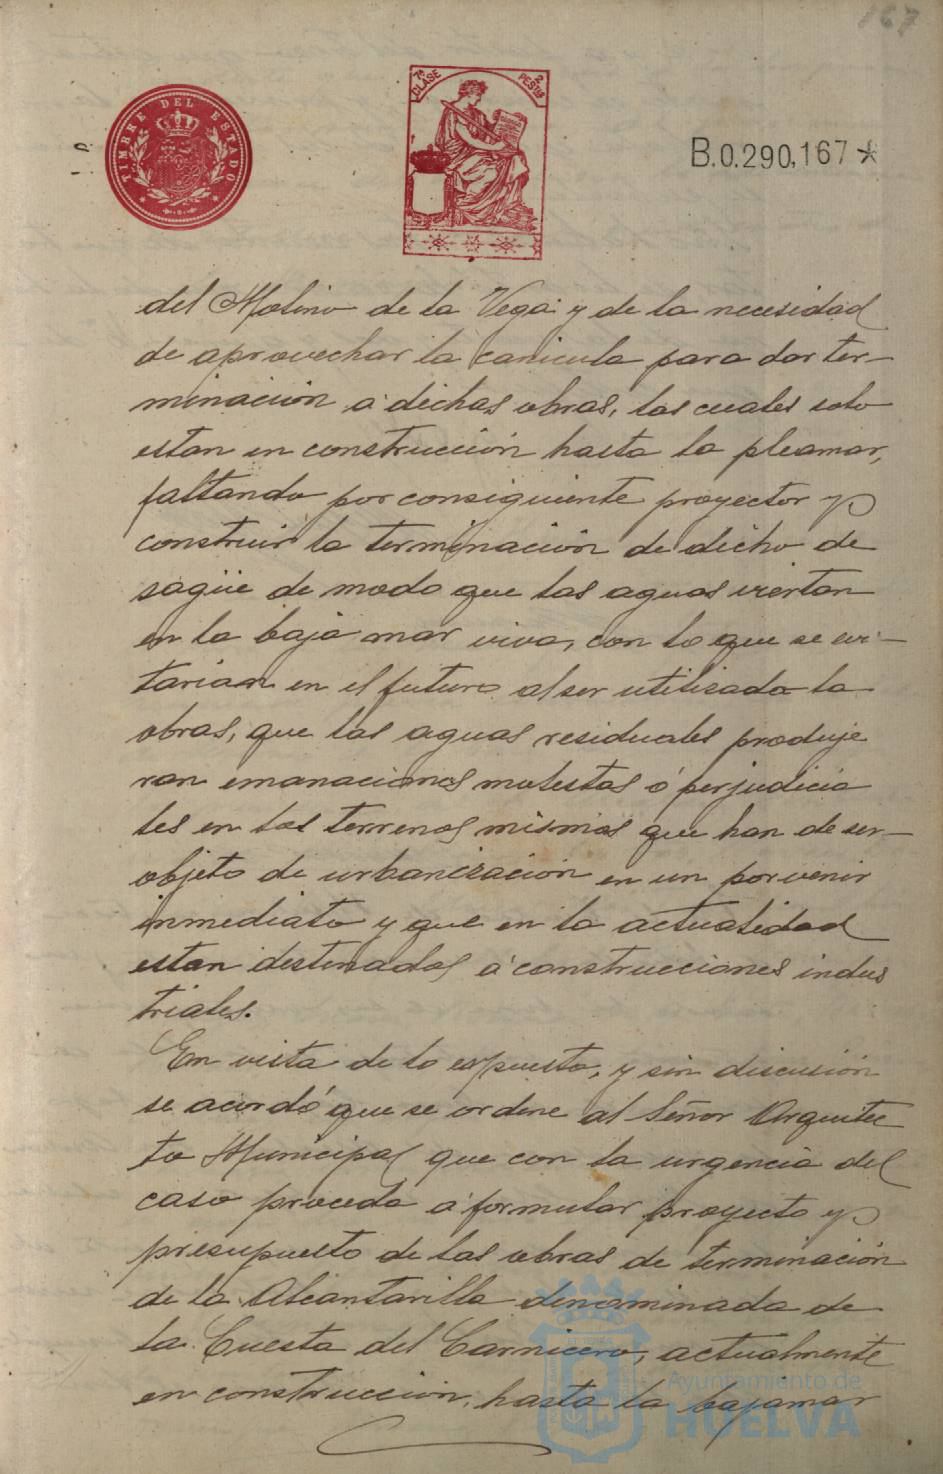 167
TIMBRE DEL ESTADO
7ª CLASE
2 PESTAS
B.0.290,167*
del Molino de la Vega y de la necesidad
de aprovechar la canicula para dar ter-
minación á dichas obras, las cuales solo
estan en construcción hasta la pleamar,
faltando por consiguiente proyectar y
construir la terminación de dicho de
sagüe de modo que las aguas viertan
en la baja mar viva, con lo que se evi-
tarian en el futuro al ser utilizada la
obras, que las aguas residuales produje
ran emanaciones molestas ó perjudicia
les en los terrenos mismos que han de ser-
objeto de urbanización en un porvenir
inmediato y que en la actualidad
estan destinados á construcciones indus
triales.
En vista de lo expuesto, y sin discusión
se acordó que se ordene al Señor Arquitec
to Municipal que con la urgencia del
caso proceda á formular proyecto y
presupuesto de las obras de terminación
de la Alcantarilla denominada de
la Cuesta del Carnicero, actualmente
en construcción, hasta la bajamar
Ayuntamiento de
HUELVA